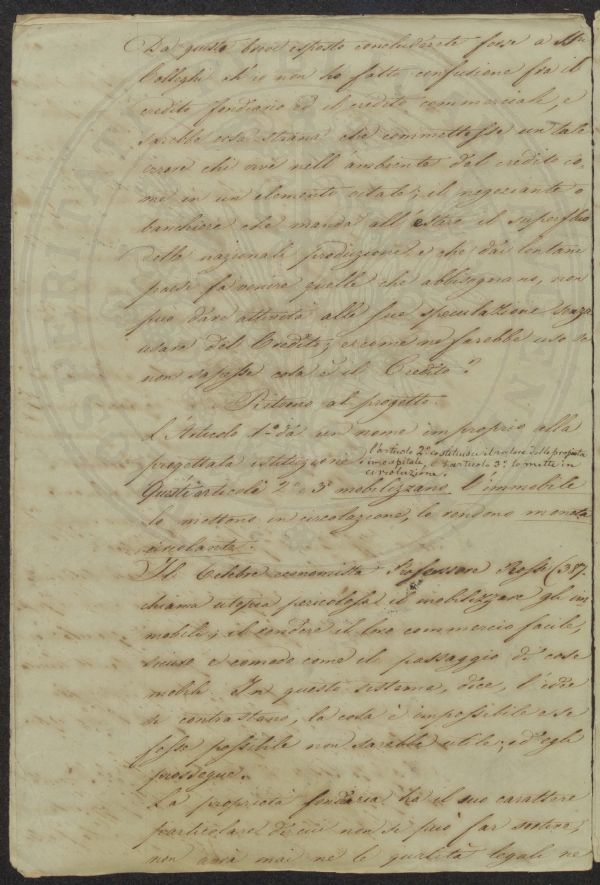 Da questo breve esposto concluderete forse o Miei
Colleghi ch'io non ho fatto confusione fra il
credito fondiario ed il credito commerciale, e
sarebbe cosa strana che commettesse un tale
errore chi vive nell'ambiente del credito co-
me in un elemento vitale; il negoziante o
banchiere che manda all'estero il superfluo
della nazionale produzione e che dai lontani
paesi fa venire quelle che abbisognano, non
può dare attività alle sue speculazioni senza
usare del Credito; e come ne farebbe uso se
non sapesse cosa è il Credito?
Ritorno al progetto.
L'Articolo 1º dà un nome improprio alla
progettata istituzione l'articolo 2º costituisce il valore della proposta
in capitale, e l'articolo 3º lo mette in
circolazione.
Questi articoli 2º e 3º mobilizzano l'immobile
lo mettono in circolazione, lo rendono moneta
circolante.
Il Celebre economista Professore Rossi (317.
chiama utopia pericolosa il mobilizzare gl'im
mobili; il rendere il loro commercio facile,
sicuro e comodo come il passaggio di cose
mobili. In questo sistema, dice, l'idee
si contrastano, la cosa è impossibile e se
fosse possibile non sarebbe utile; ed egli
prossegue.
La proprietà fondiaria ha il suo carattere
particolare di cui non si può far sortire,
non avrà mai ne le qualità legali ne